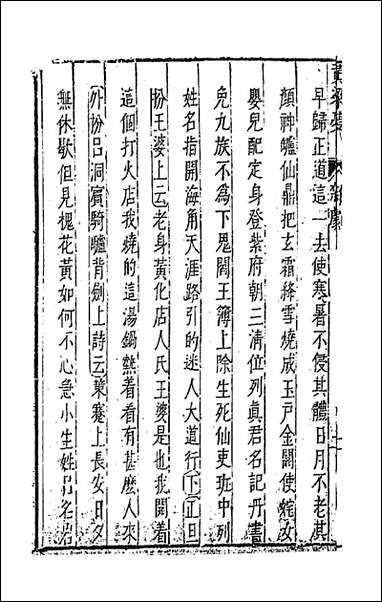 黃粱夢　雜劇
早歸正道這一去使寒暑不侵其體日月不老其
顏神爐仙鼎把玄霜絳雪燒成玉戸金關使姹女
嬰兒配定身登紫府朝三清位列眞君名記丹書
免九族不爲下鬼閻王簿上除生死仙吏班中列
姓名指開海角天涯路引的迷人大道行下正旦
扮王婆上云老身黃化店人氏王婆是也我開着
這個打火店我燒的這湯鍋熱着看有甚麽人來
外扮呂洞賓騎驢背劍上詩云策蹇上長安日夕
無休歇但見槐花黃如何不心急小生姓呂名岩